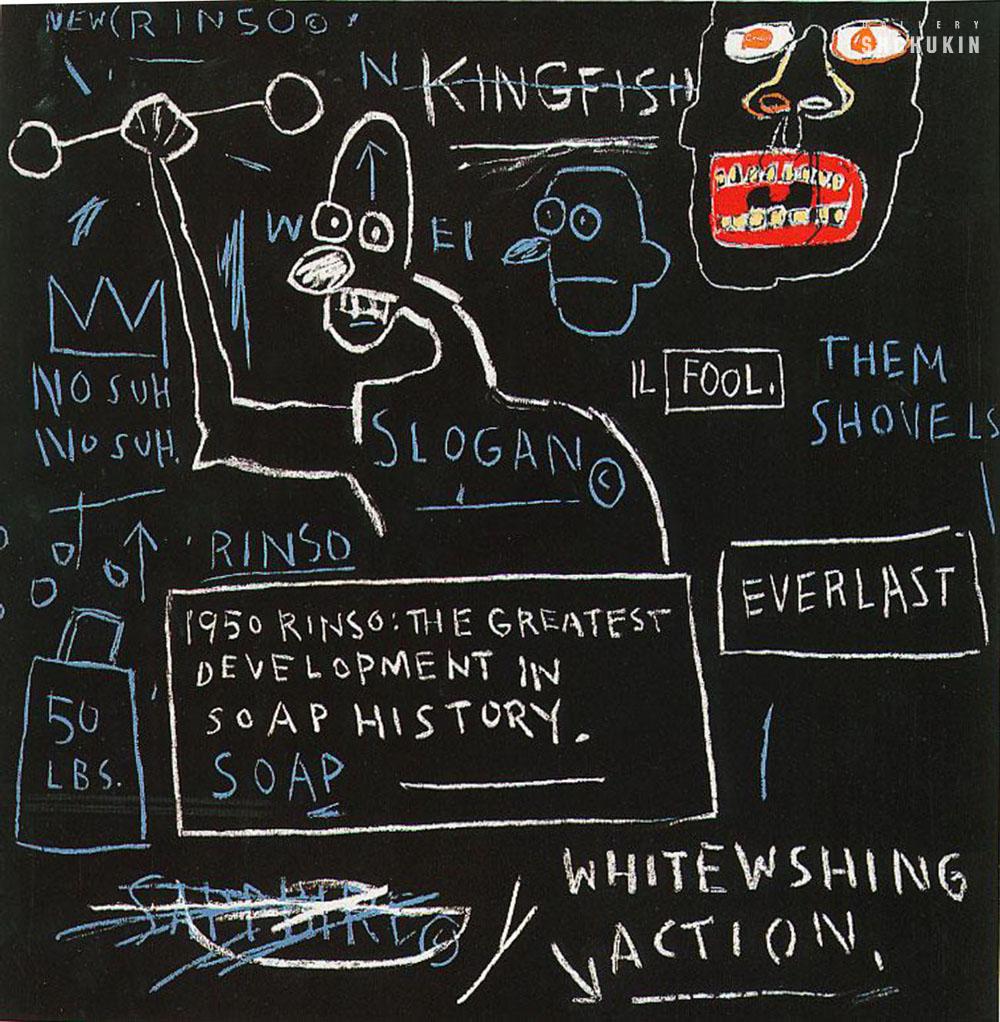 NEW (RINSO©
GALLERY
SHCHUKIN
N KINGFISH
W EI
NO SUH
NO SUH.
IL FOOL.
THEM
SHOVELS
SLOGAN ©
RINSO
EVERLAST
1950 RINSO: THE GREATEST
DEVELOPMENT IN
SOAP HISTORY.
SOAP
50
LBS.
SAPPHIRE ©
WHITEWSHING
ACTION.